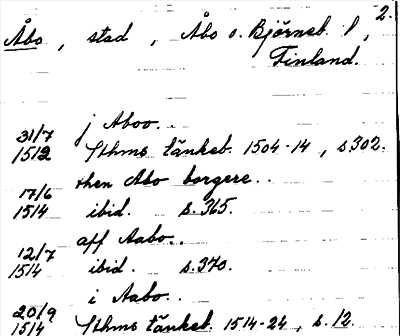 2.
Åbo, stad, Åbo o. Björneb. l,
Finland.
j Aboo..
31/7
1512 Sthms tänkeb. 1504-14, s 302.
then Abo borgere..
17/6
1514 ibid. s. 365.
aff Aabo..
12/7
1514 ibid. s. 370.
i Aabo..
20/9
1514 Sthms tänkeb. 1514-24, s. 12.